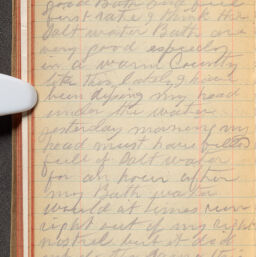 good Bath and feel
first rate I think the
Salt water Bath are
very good especialy
in a warm Country
like this, lately I have
been diping my head
under the water
yesterday morning my
head must have filled
full of Salt water
for an hour after
my Bath water
would at times run
right out of my right
nostril but it did